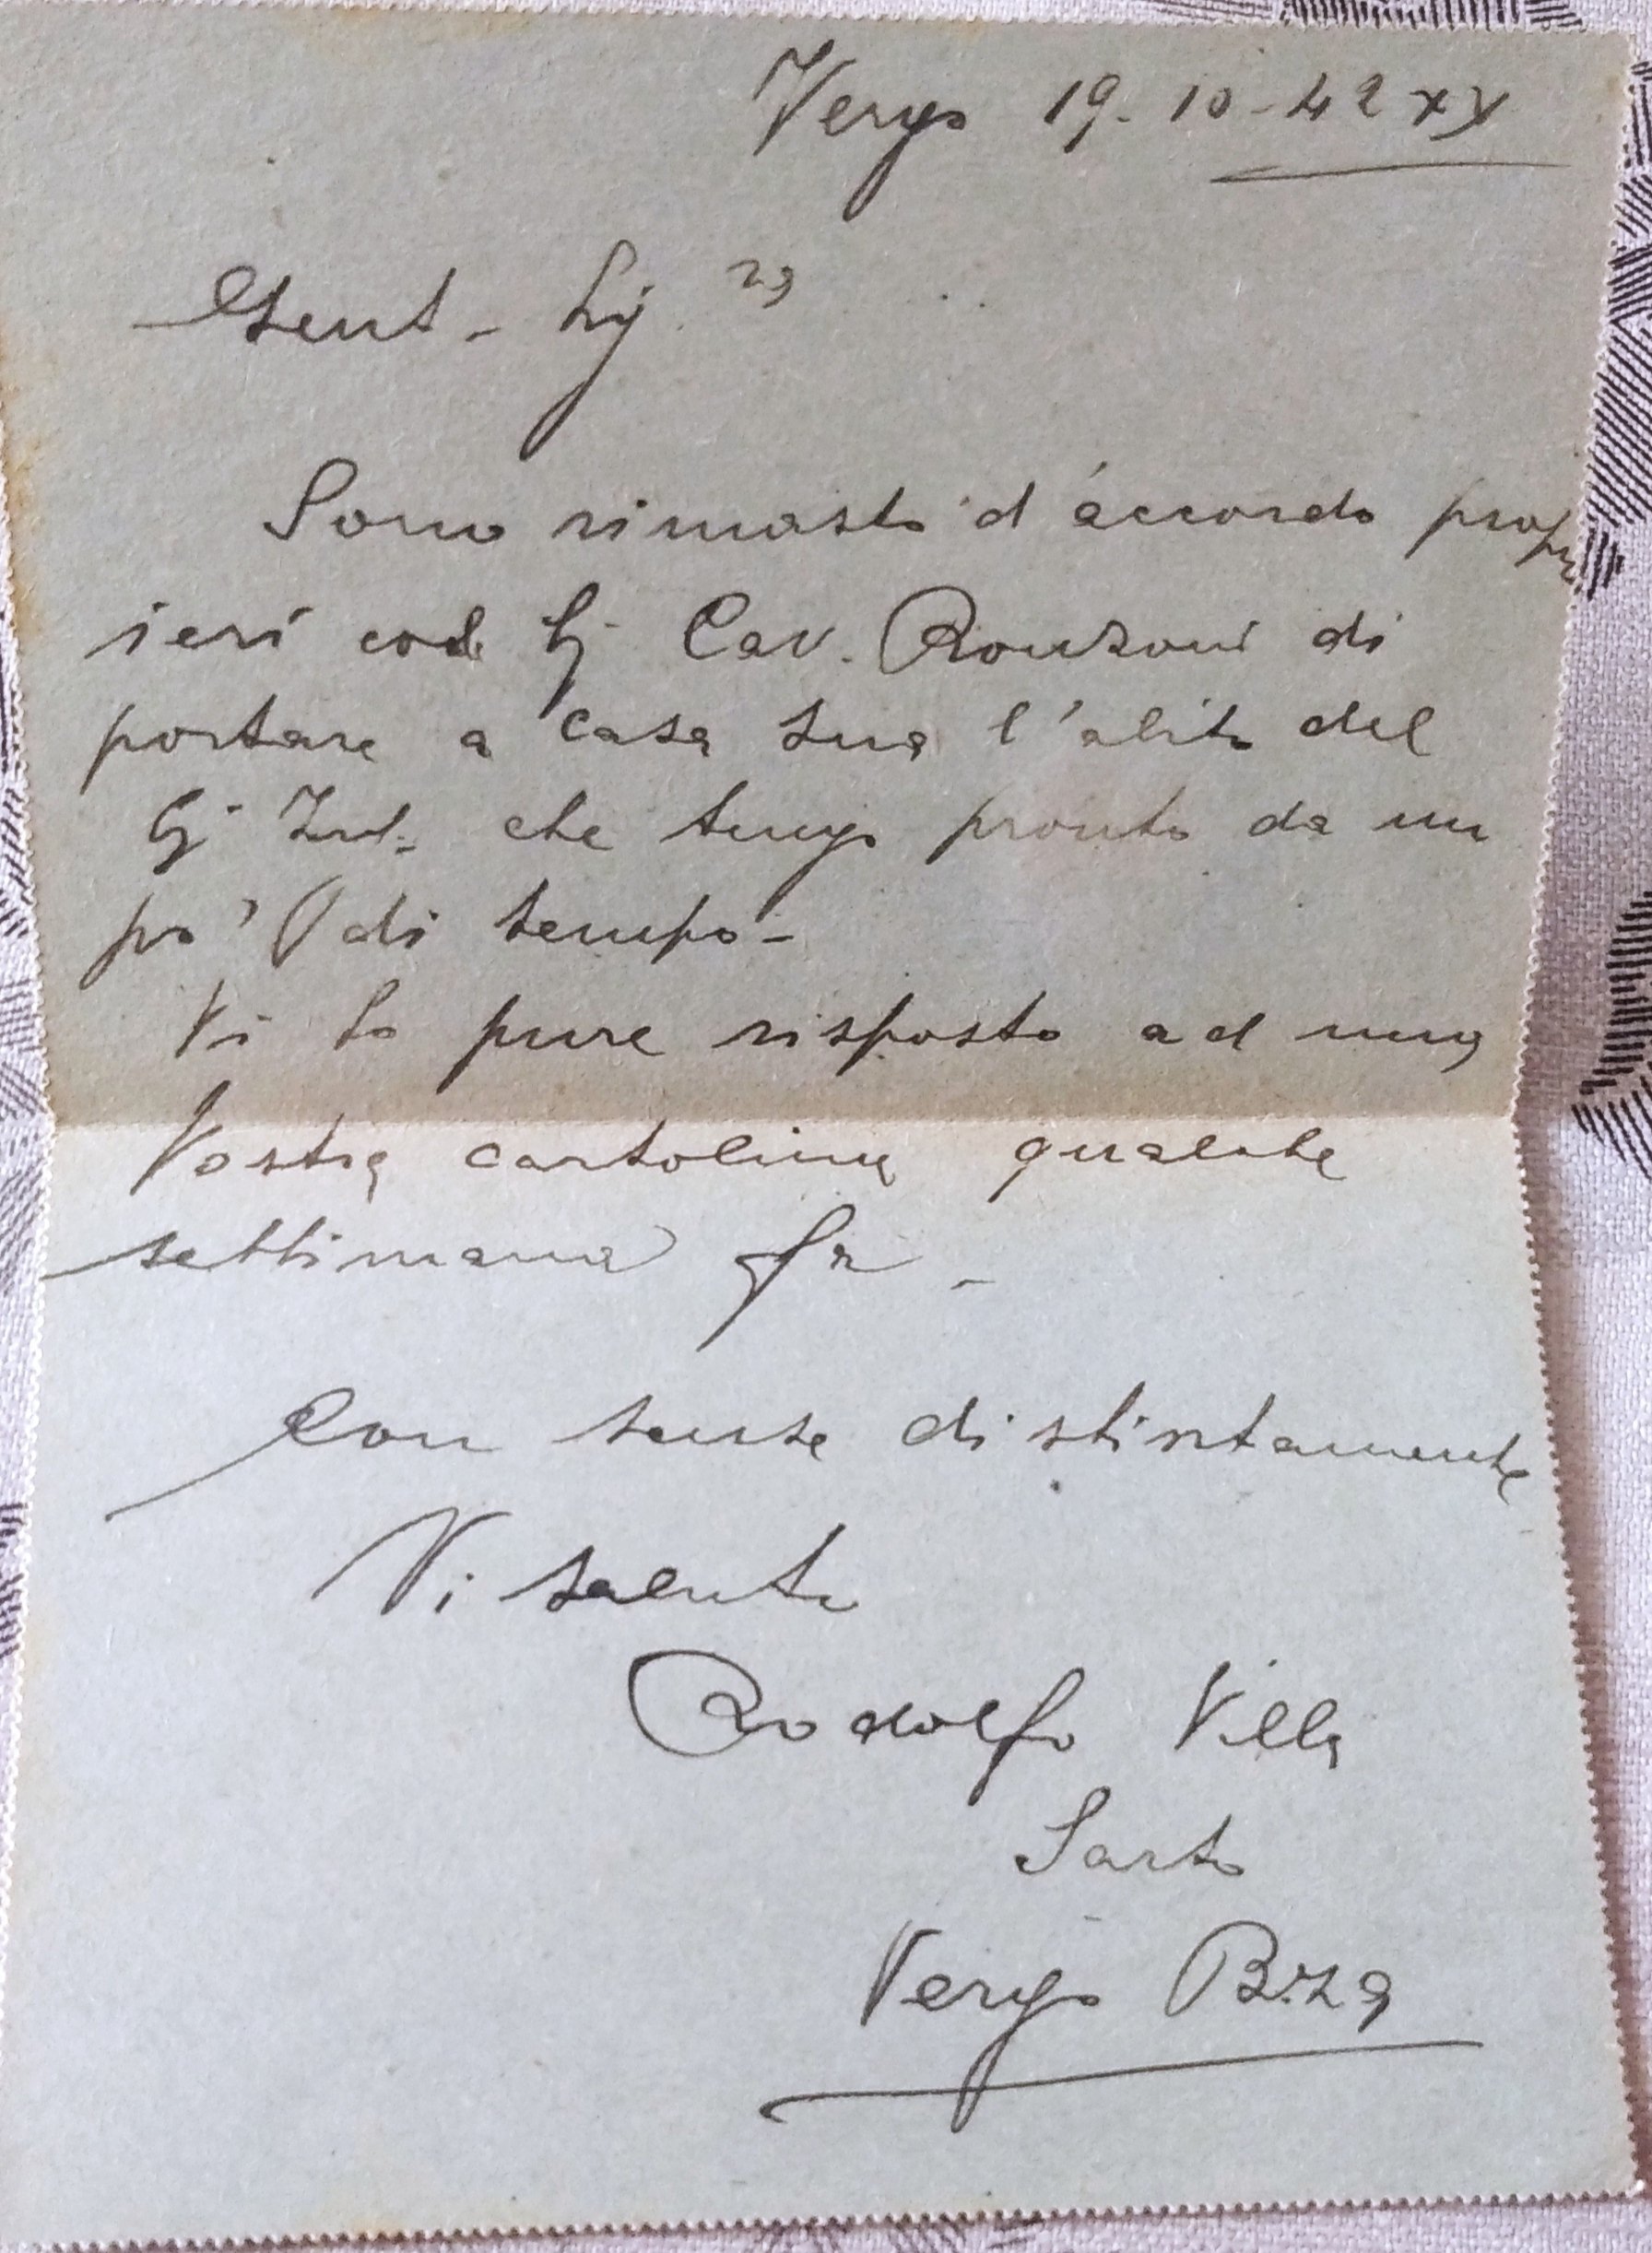 Vergo 19-10-42 XX
Gent. Sig. ra
Sono rimasto d'accordo
ieri col Sig Cav. Ronzoni di
portare a casa sua l'abito del
Sig che tengo pronto da un
po' di tempo-
Vi ho pure risposto ad una
Vostra cartolina qualche
settimana fa -
Con scuse distintamente
Vi saluto
Rodolfo Villa
Sarto
Vergo B.za